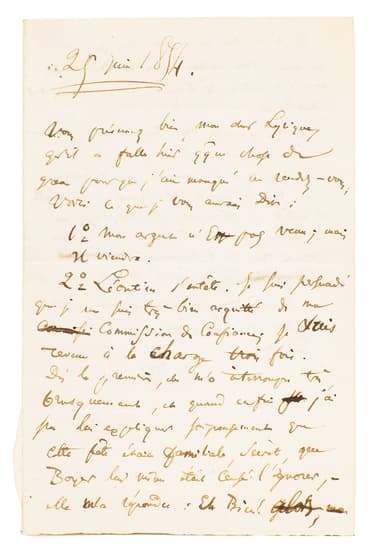 25 juin 1854.
Vous présumez bien, mon cher Lyrique,
qu'il a fallu hier qq chose de
grave pour que j'aie manqué ce rendez-vous,
Voici ce que je vous aurais dit :
1o Mon argent n'est pas venu ; mais
il viendra.
2o Léontine s'entête. Je suis persuadé
que je me suis très bien acquitté de ma
Commission de Confiance, je suis
revenu à la charge trois fois.
Dès la première, elle m'a interrompu très
brusquement, et quand enfin j'ai
pu lui expliquer que
cette fête était familiale, secret, que
Boyer lui même était censé l'ignorer, –
elle m'a répondu : Eh Bien !